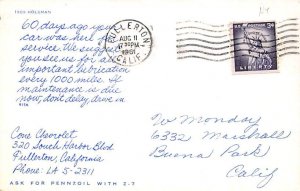 TROY KOLEMAN
60 days ago your
car was here for
service. We suggest
you see us for all
important lubrication
every 1000 miles. If
maintenance is due
now, don't delay, drive in
Cone Chevrolet
320 South Harbor Blvd
Fullerton, California
Phone: LA 5-2311
ASK FOR PENNZOIL WITH Z-7
FULLERTON
AUG 11
7:30 PM
1961
CALIF.
3¢
LIBERTY
W Monday
6332 Marshall
Buena Park
Calif